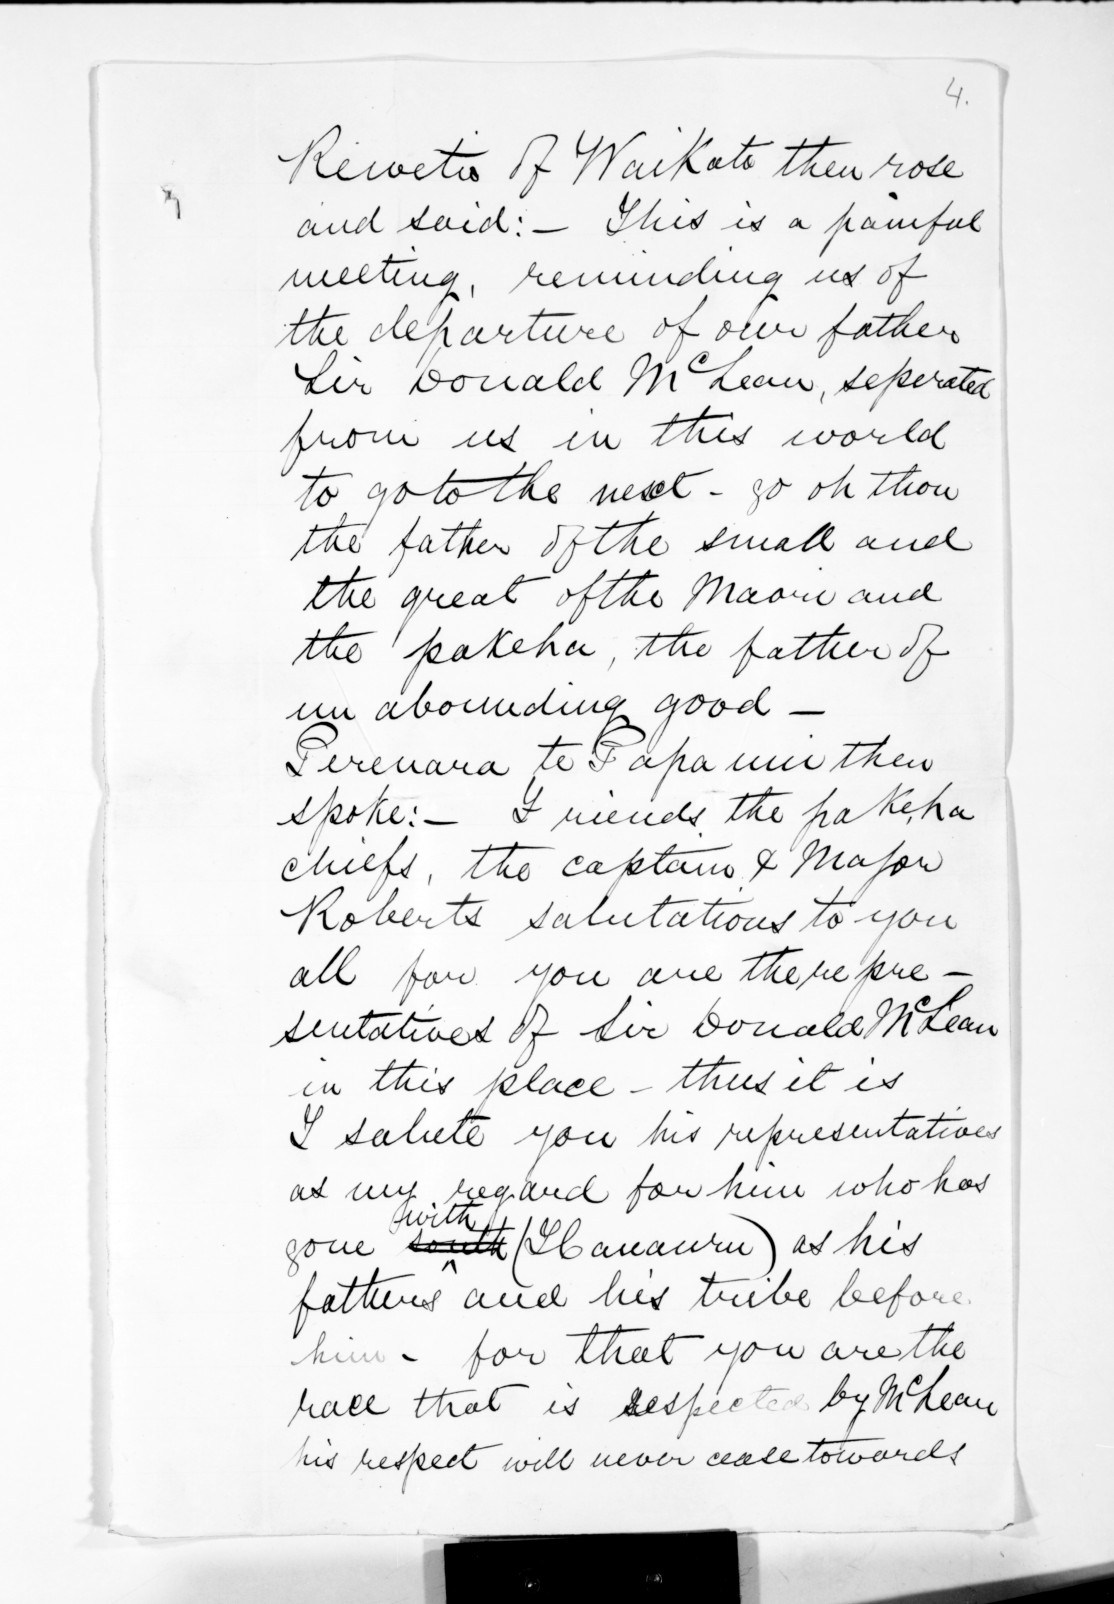 4.
Reweti of Waikato then rose
and said:— This is a painful
meeting, reminding us of
the departure of our father
Sir Donald McLean, seperated
from us in this world
to go to the next - go oh thou
the father of the small and
the great of the Maori and
the pakeha, the father of
un abounding good —
Perenara te Papa then
spoke:— Friends, the pakeha
chiefs, the captain & Major
Roberts salutations to you
all for you are the repre-
sentatives of Sir Donald McLean
in this place - thus it is
I salute you his representatives
as my regard for him who has
with
gone south (Hanauru) as his
fathers and his tribe before
him - for that you are the
race that is respected by McLean
his respect will never cease towards